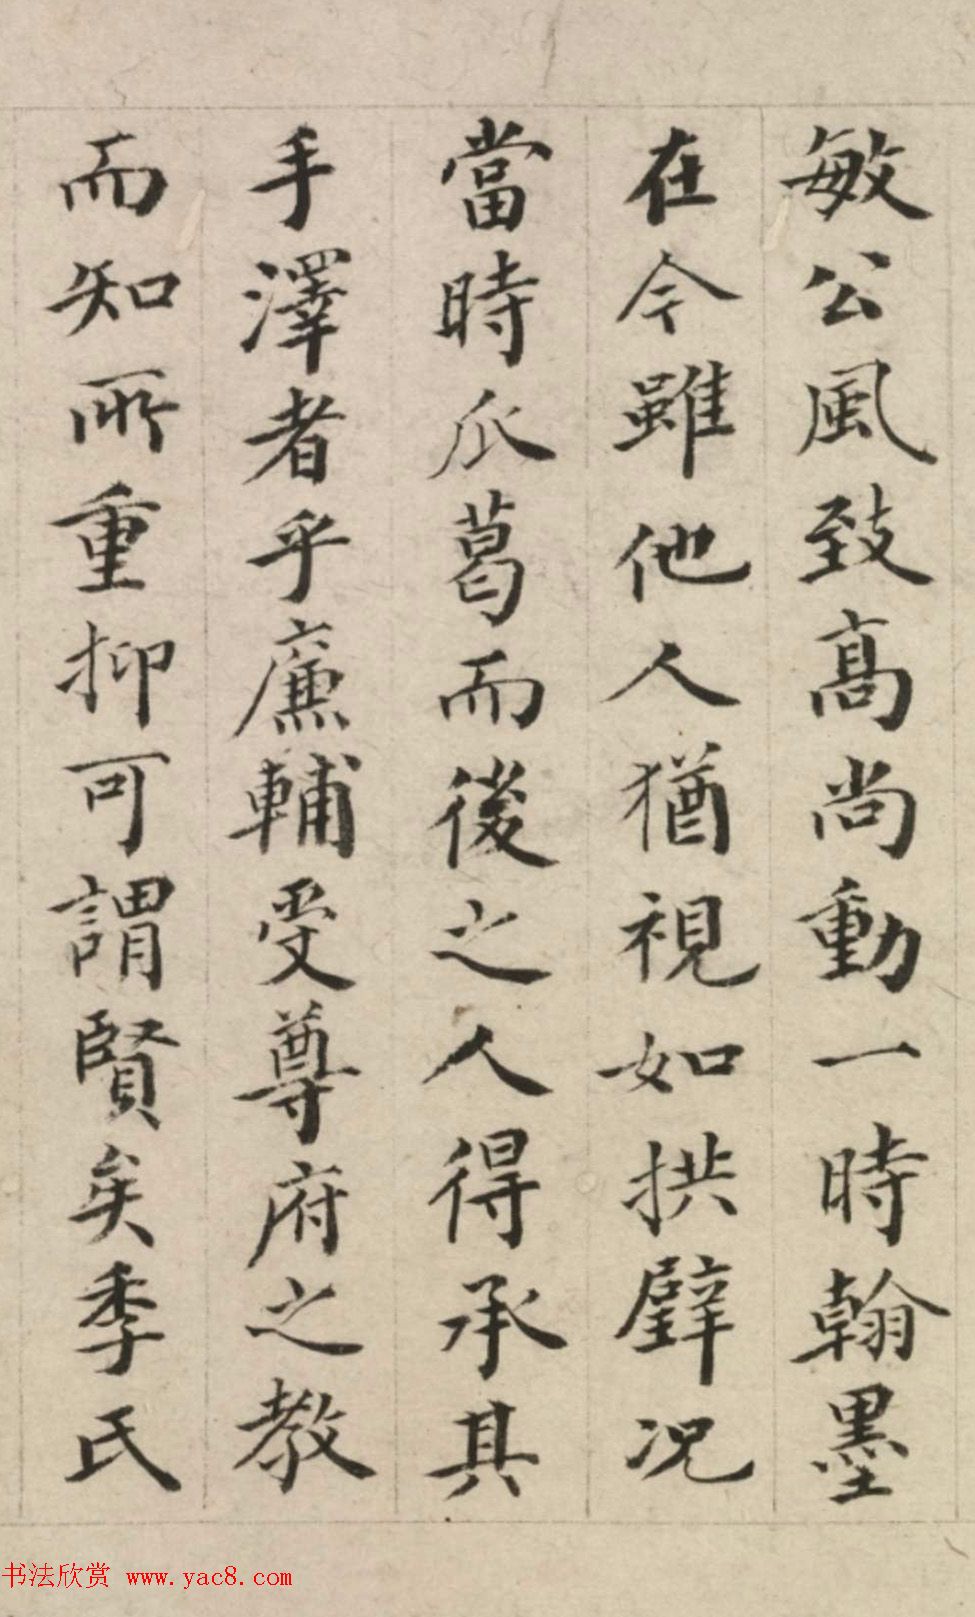 敏公風致髙尚動一時翰墨
在今雖他人猶視如拱璧况
當時瓜葛而後之人得承其
手澤者乎廉輔受尊府之教
而知所重抑可謂賢矣季氏
书法欣赏 www.yac8.com